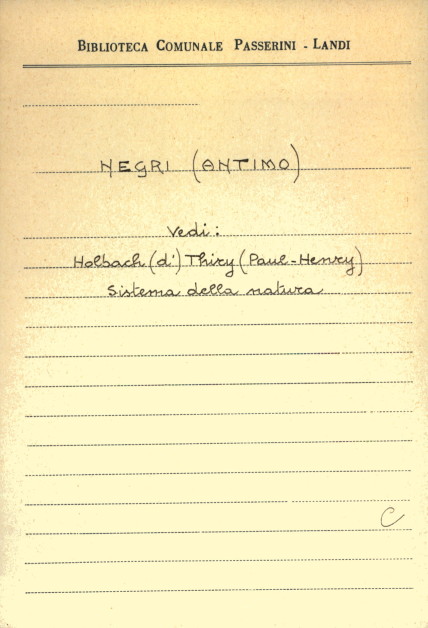 BIBLIOTECA COMUNALE PASSERINI - LANDI
NEGRI (ANTIMO)
Vedi:
Holbach (d') Thiry (Paul-Henry)
Sistema della natura
C